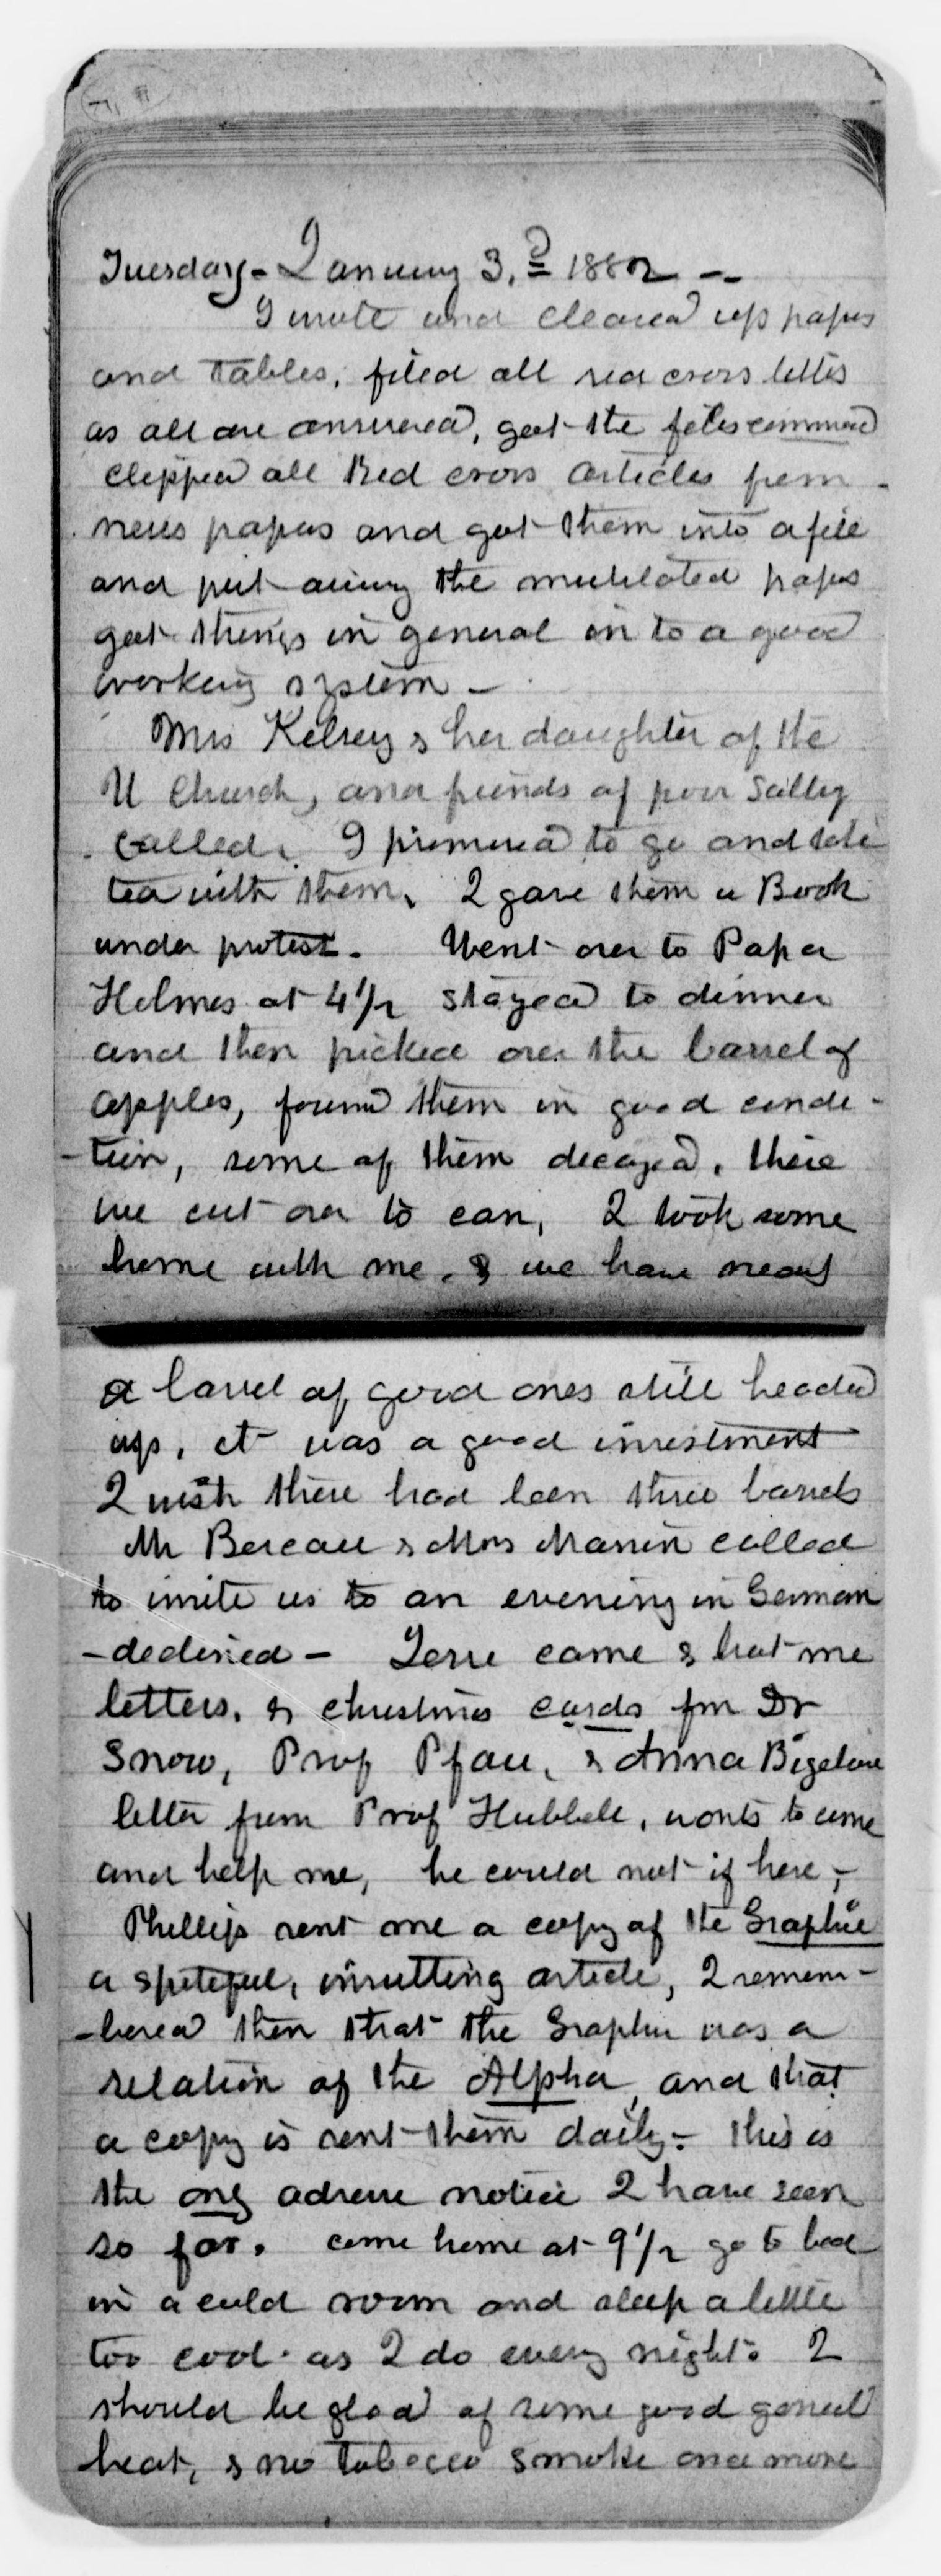 Tuesday - January 3.D 1882 --
I wrote and cleared up papers
and tables, filed all red cross letters
as all are answered, got the files commenced
clipped all Red cross articles from
news papers and got them into a file
and put away the mutilated papers
got things in general in to a good
working system -
Mrs Kelsey & her daughter of the
U Church, and friends of poor Sally
called. I promised to go and take
tea with them. I gave them a Book
under protest. Went over to Papa
Holmes at 4 1/2 stayed to dinner
and then picked over the barrel of
apples, found them in good condi-
-tion, some of them decayed. these
we cut over to can, I took some
home with me. & we have nearly
a barrel of good ones still headed
up, it was a good investment
I wish there had been three barrels
Mr Bereau & Mrs called
to invite us to an evening in German
- declined - came & brot me
letters. & christmas cards fm Dr
Snow, Prof Pfau, & Anna Bigelow
letter from Prof Hubbell, wants to come
and help me, he could not if here, -
Phillips sent me a copy of the Graphic
a spiteful, insulting article, I remem-
-bered then that the Graphic was a
relation of the Alpha, and that
a copy is sent them daily - this is
the only adverse notice I have seen
so far. come home at 9 1/2 go to bed
in a cold room and sleep a little
too cool as I do every night. I
should be glad of some good general
heat, & no tobacco smoke once more